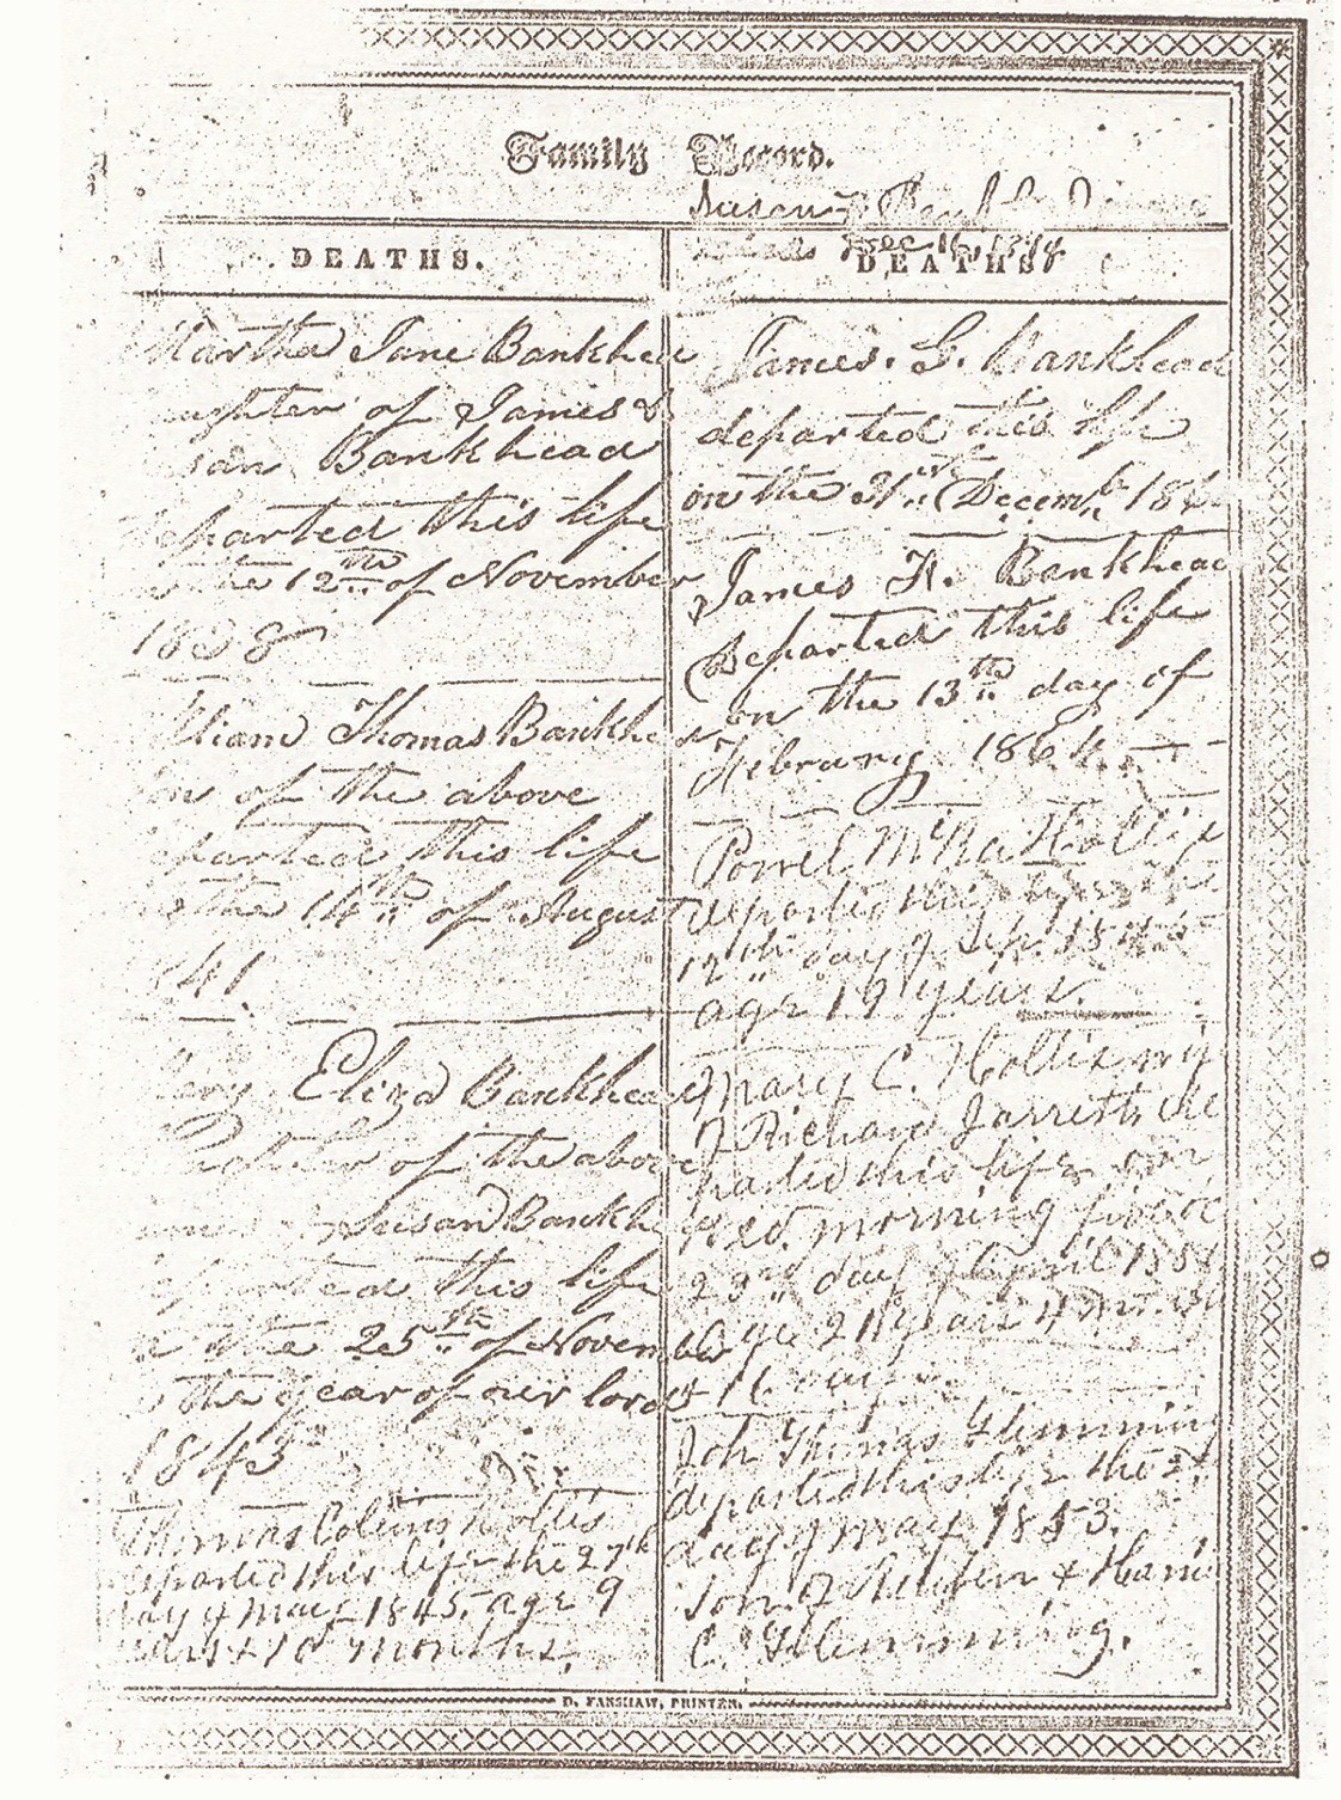 Family Record.
DEATHS.
Martha Jane Bankhea
ughter of James &
san Bankhead
eparted this life
the 12th of November
1838
lliam Thomas Bankhe
on of the above
eparted this life
the 14th of August
41.
ary Eliza Bankhead
of the above
Susan Bankh
this life
the 25th of November
the year of our lord
1843
Thomas Colems Hollis
eparted this life the 27th
ay of May 1845. age 9
ears & 10 months.
Susan F.
Dec 16, 18
DEATHS
James. G. Bankhead
departed this life
on the 31st Decemb 18
James H. Bankhead
Departed this life
on the 13th day of
Febrary 1864.
Powel McRa Hollis
departed this life
12th day of Sep. 184
age 19 years.
Mary C. Hollis wif
of Richard Jarrett, de
parted this life
morning
23rd day of April 185
age 21 years 4 
John Thomas Flemming
departed this life the 2
day of May 1853.
son of Reuben & Hani
C. Flemming.
D. FANSHAW, PRINTER.